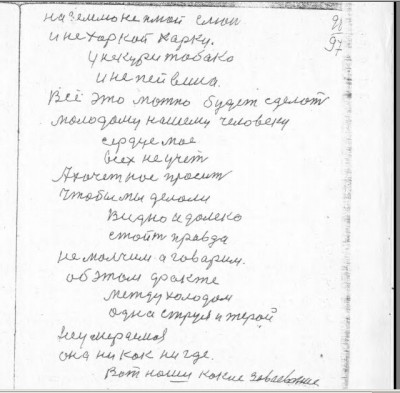 на землю не плюй слюн
и не харкой харку.
у не кури табако
и не пей вина.
Всё это можно будет сделот
молодому нашему человеку
сердце мое
всех не учет
А хочет ное просит
Чтобы мы делали
Видно и далеко
стоит правда
не молчим а говарим.
об этом факте
между холодом
одна струя и жерой
неумераемоя
она ни как ни где.
Вот наши какие
91
97